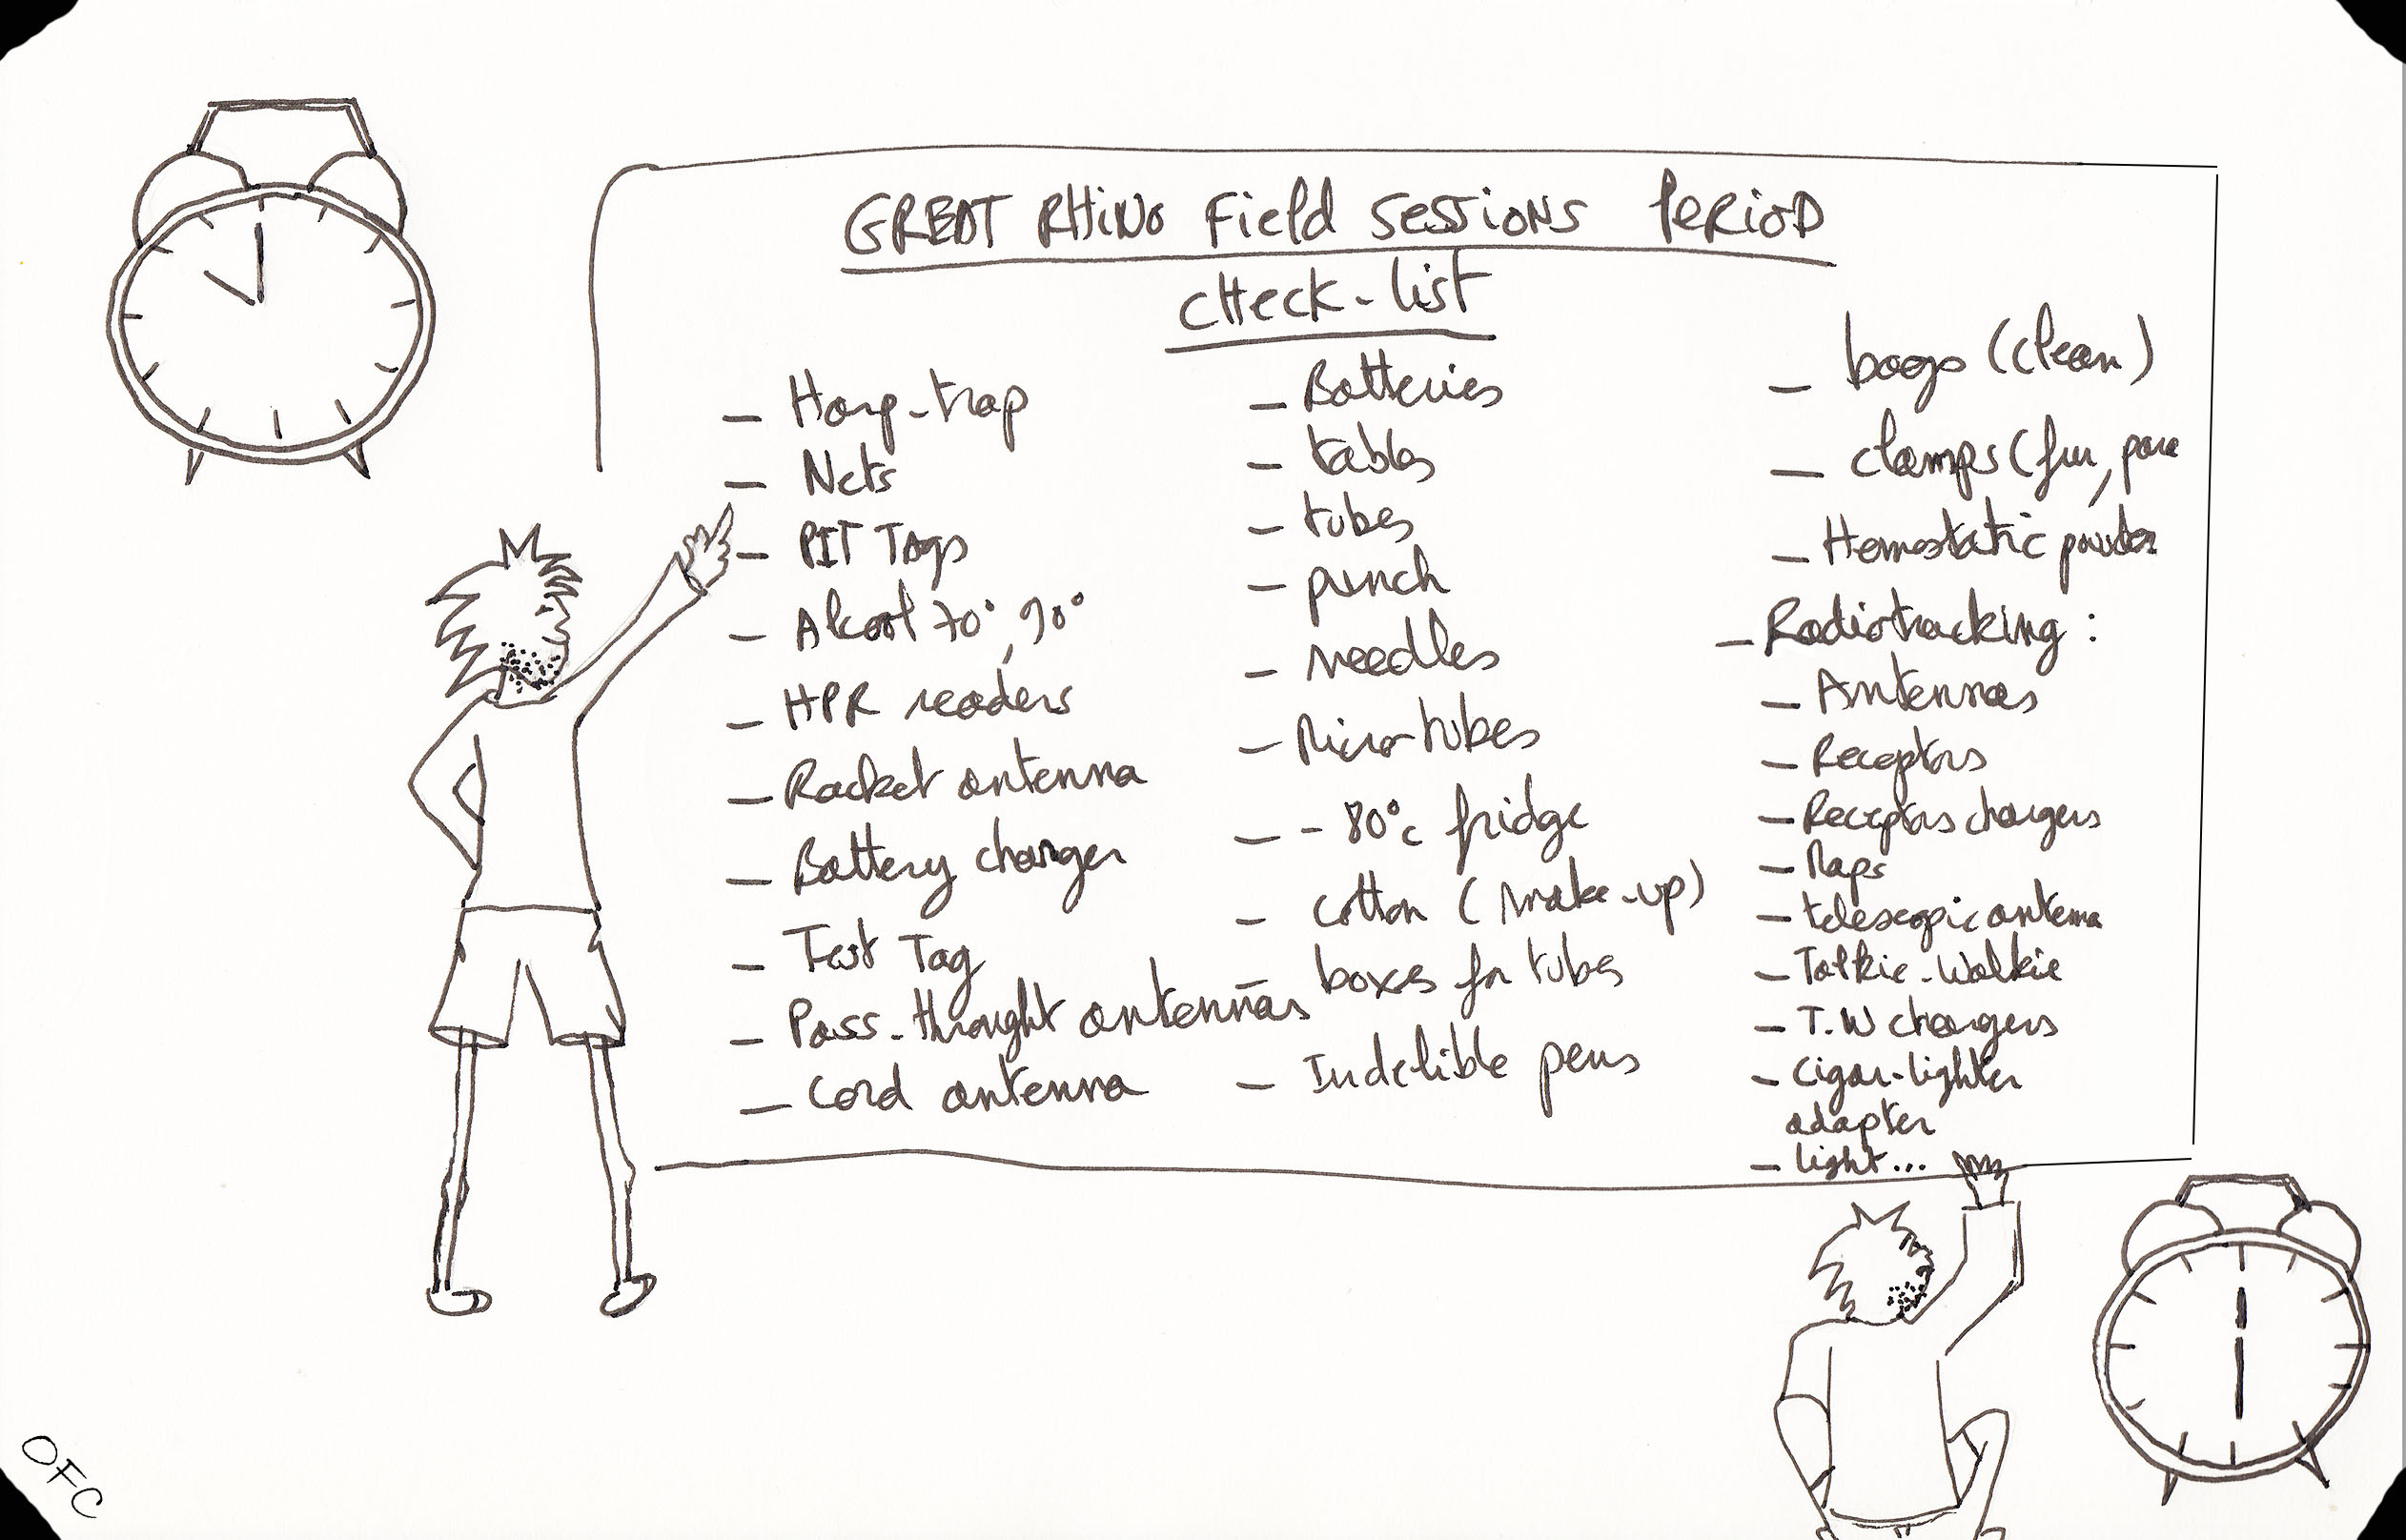 GREAT RHiNo Field SeSSiONS PERiOD
CHeck-list
_ Harp-trap
_ Nets
_ PIT Tags
_ Alcool 70°, 90°
_ HPR readers
_ Racket antenna
_ Battery charger
_ Test Tag
_ Pass-throught antennas
_ Cord antenna
_ Batteries
_ tables
_ tubes
_ punch
_ needles
_ Micro-tubes
_ -80°c fridge
_ cotton (make-up)
_ boxes for tubes
_ Indelible pens
_ bags (clean)
_ clamps (fur,
_ Hemostatic powder
_ Radiotracking :
_ Antennas
_ Receptors
_ Receptors chargers
_ Maps
_ telescopic antenna
_ Talkie-Walkie
_ T.W chargers
_ Cigar-lighter
adapter
_ light...
OFC